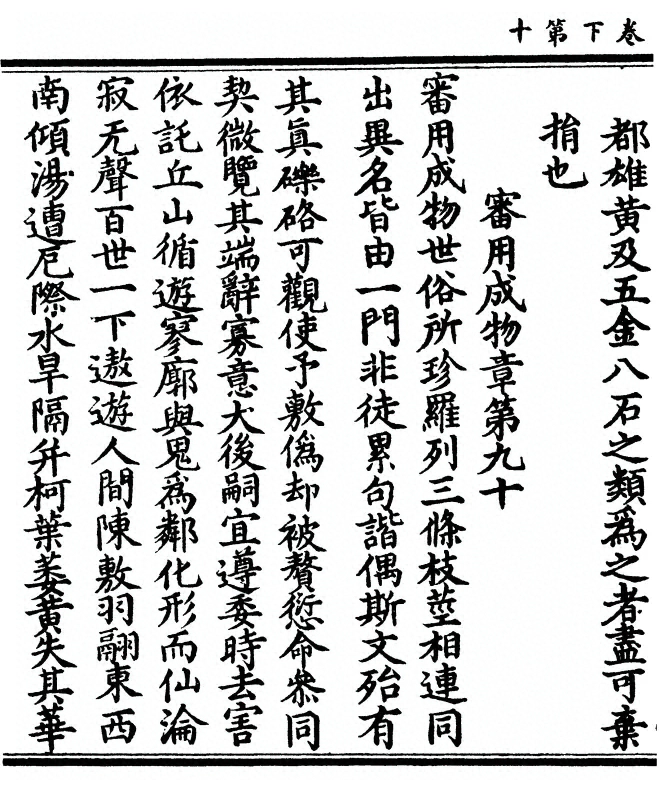 卷下第十
都雄黃及五金八石之類爲之者盡可棄
捐也
審用成物章第九十
審用成物世俗所珍羅列三條枝莖相連同
出異名皆由一門非徒累句諧偶斯文殆有
其眞礫硌可觀使予敷僞却被贅愆命叅同
契微覽其端辭寡意大後嗣宜遵委時去害
依託丘山循遊寥廓與鬼爲鄰化形而仙淪
寂无聲百世一下遨遊人間陳敷羽翮東西
南傾湯遭厄際水旱隔幷柯葉萎黃失其華